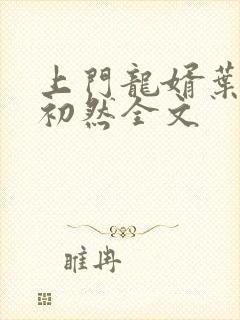 上門龍婿葉
初然全文
雎冉